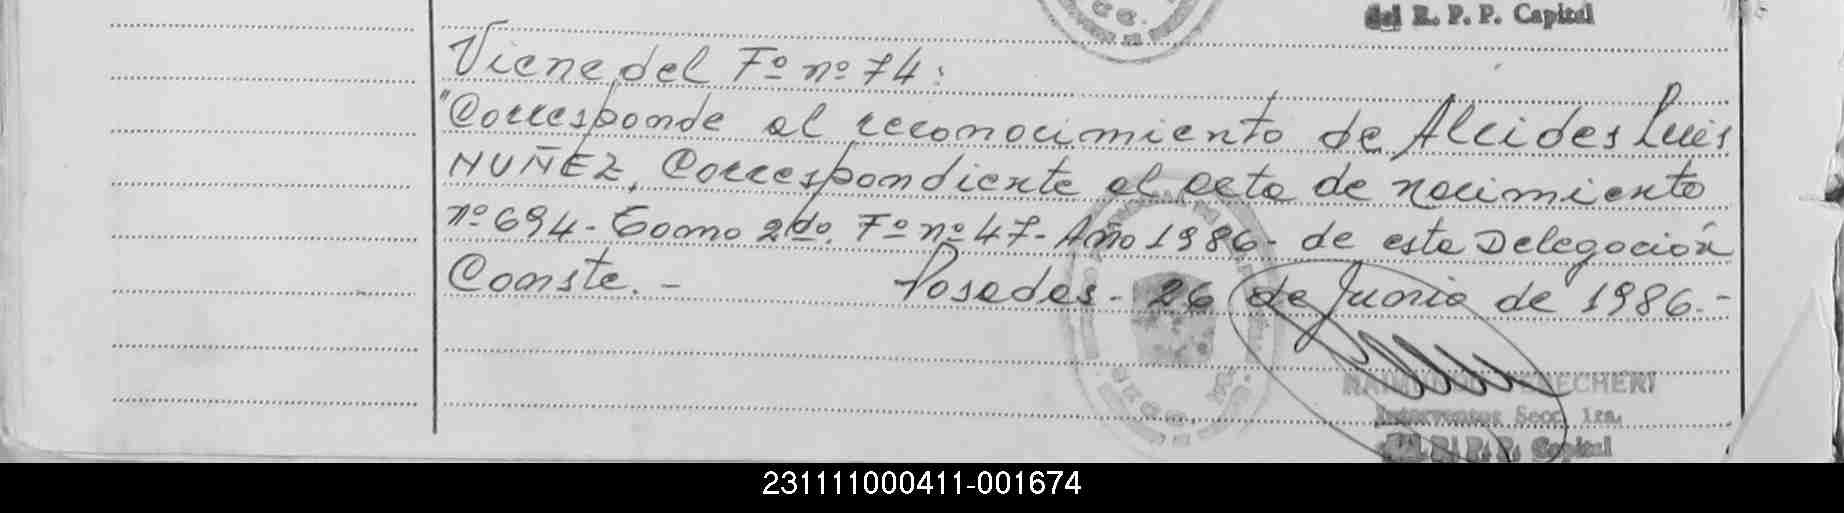 del R. P. P. Capital
Viene del Fº nº 74:
"Corresponde al reconocimiento de Alcides Luis
NUÑEZ, Correspondiente al acta de nacimiento
nº 694 - Tomo 2do. Fº nº 47 - Año 1986 - de esta Delegación
Conste. - Posadas - 26 de Junio de 1986.-
Interventor Secc. 1ra.
del R. P. P. Capital
231111000411-001674